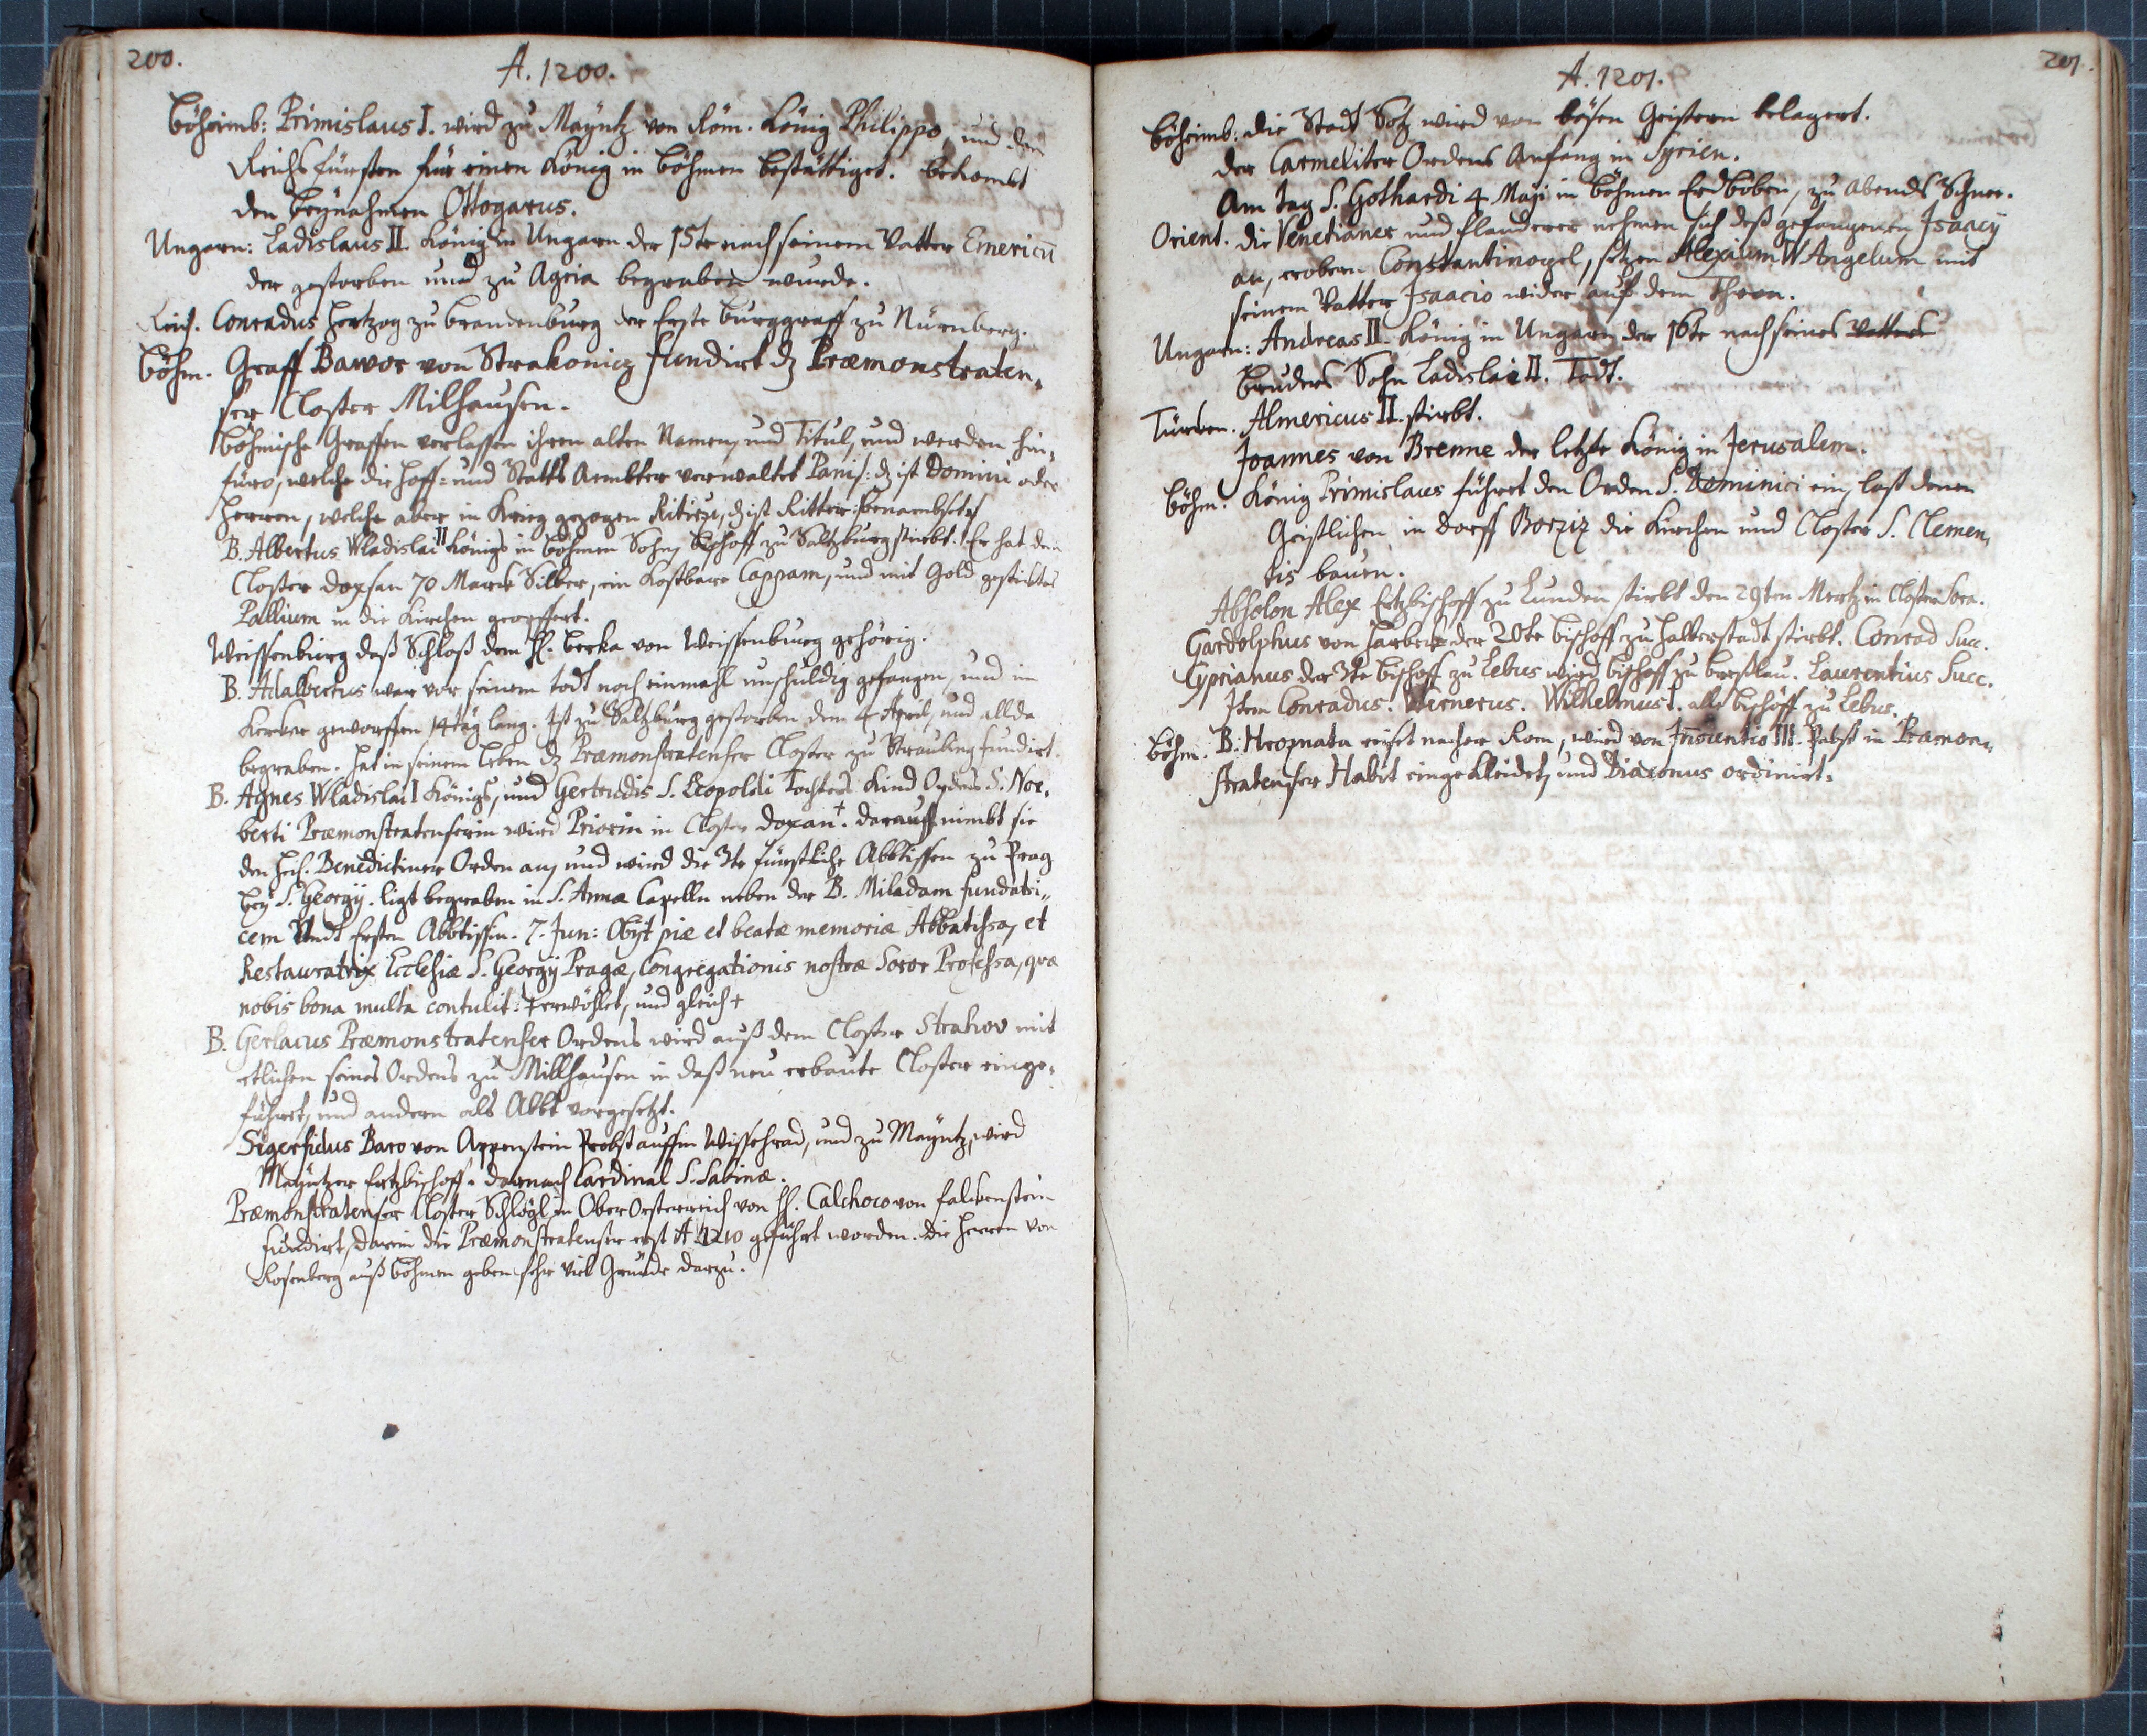 200.
A. 1200.
Böheimb: Primislaus I. wird zu Mayntz von Röm. König Philippo und den
Reichs fürsten für einen König in Böhmen bestättiget. bekombt
den beynahmen Ottogarus.
Ungarn: Ladislaus II. König in Ungarn der 15te nach seinem Vatter Emericū
der gestorben und zu Agria begraben wurde.
Reich. Conradus Hertzog zu Brandenburg der Erste burggraff zu Nürnberg.
Böhm. Graff Bawor von Strakonicz fundirt dz Præmonstraten,
ser Closter Milhausen.
Böhmische Graffen verlassen ihren alten Namen, und Titul, und werden hin,
füro, welche die Hoff- und Statts Aembter verwaltet Pani: dz ist Domini oder
Herren, welche aber in Krieg gezogen Ritirzi, dz ist Ritter: benambset
B. Albertus Wladislai II Königs in Böhmen Sohn, Bischoff zu Saltzburg stirbt. Er hat dem
Closter Doxan 70 Marck Silber, ein kostbare Cappam, und mit Gold gesticktes
Pallium in die Kirchen geopffert.
Weissenburg daß Schloß dem H. Berka von Weissenburg gehörig.
B. Adalbertus war vor seinem todt noch einmahl unschuldig gefangen, und in
Kercker geworffen 14 täg lang. Ist zu Saltzburg gestorben den 4 April, und allda
begraben. Hat in seinem Leben dz Præmonstratenser Closter zu Straubing fundirt.
B. Agnes Wladislai I Königs, und Gertrudis S. Leopoldi Tochters Kind Ordens S. Nor,
berti Præmonstratenserin wird Priorin in Closter Doxan +. darauff nimbt sie
den Heil. Benedictiner Orden an, und wird die 3te fürstliche Abbtissin zu Prag
bey S. Georgij. ligt begraben in S. Annæ Capelln neben der B. Miladam fundatri,,
cem Undt Ersten Abbtissin. 7. Jun: Obijt piæ et beatæ memoriæ Abbatissa, et
Restauratrix Ecclesiæ S. Georgij Pragæ, Congregationis nostræ Soror Professa, quæ
nobis bona multa contulit. + erwöhlet, und gleich +
B. Gerlacus Præmonstratenser Ordens wird auß dem Closter Strahov mit
etlichen seines Ordens zu Millhausen in daß neu erbaute Closter einge,
führet, und andern als Abbt vorgesetzt.
Sigerfidus Baro von Appenstein Probst auffm Wissehrad, und zu Mayntz, wird
Mayntzer Ertzbischoff. darnach Cardinal S. Sabinæ.
Præmonstratenser Closter Schlögl in Ober Oesterreich von H. Calchoco von Falckenstein
fundirt, darein die Præmonstratenser erst A. 1210 geführt worden. die Herren von
Rosenberg auß Böhmen geben sehr viel Gründe darzu.
201.
A. 1201.
Böheimb: die Stadt Sotz wird von bösen Geistern belagert.
der Carmeliter Ordens Anfang in Syrien.
Am tag S. Gothardi 4 Maji in Böhmen Erdböben, zu abends Schnee.
Orient. die Venetianer und flanderer nehmen sich deß gefangenen Isaacij
an, erobern Constantinopel, setzen Alexium IV Angelum mit
seinem Vatter Isaacio wider auf dem Thron.
Ungarn: Andreas II. König in Ungarn der 16te nach seines Vatters
bruders Sohn Ladislai II. Todt.
Türcken. Almericus II. stirbt.
Joannes von Brenne der letzte König in Jerusalem.
Böhm. König Primislaus führet den Orden S. Dominici ein, last denen
Geistlichen in dorff Borziz die Kirchen und Closter S. Clemen,
tis bauen.
Absolon Alex Ertzbischoff zu Lunden stirbt den 29ten Mertz in Closter Sora.
Gardolphus von Harbek der 20te bischoff zu Halberstadt stirbt. Conrad Succ.
Cyprianus der 3te bischoff zu Lebus wird bischoff zu Breßlau. Laurentius Succ.
Item Conradus. Wernerus. Wilhelmus I. alle bischöff zu Lebus.
Böhm. B. Hroznata reiset nacher Rom, wird von Innocentio III. Pabst in Præmon,
stratenser Habit eingekleidet, und Diaconus ordinirt.